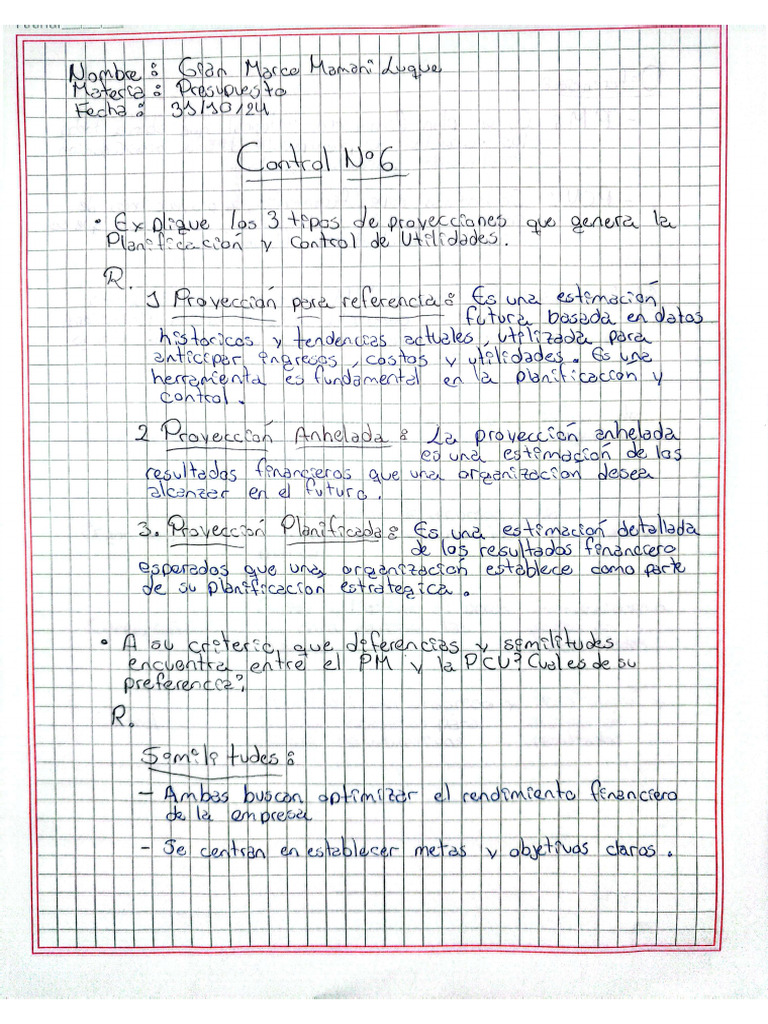 Nombre : Gian Marco Mamani Luque
Materia : Presupuesto
Fecha : 31/10/24
Control Nº6
• Explique los 3 tipos de proyecciones que genera la
Planificación y Control de Utilidades.
R.
1 Proyección para referencia : Es una estimación
futura basada en datos
historicos y tendencias actuales, utilizada para
anticipar ingresos, costos y utilidades. Es una
herramienta es fundamental en la planificación y
control.
2 Proyección Anhelada : La proyección anhelada
es una estimación de los
resultados financieros que una organización desea
alcanzar en el futuro.
3. Proyección Planificada : Es una estimación detallada
de los resultados financiero
esperados que una organización establece como parte
de su planificación estrategica.
• A su criterio, que diferencias y similitudes
encuentra entre el PM y la PCU? Cual es de su
preferencia?
R.
Similitudes :
- Ambas buscan optimizar el rendimiento financiero
de la empresa
- Se centran en establecer metas y objetivos claros.